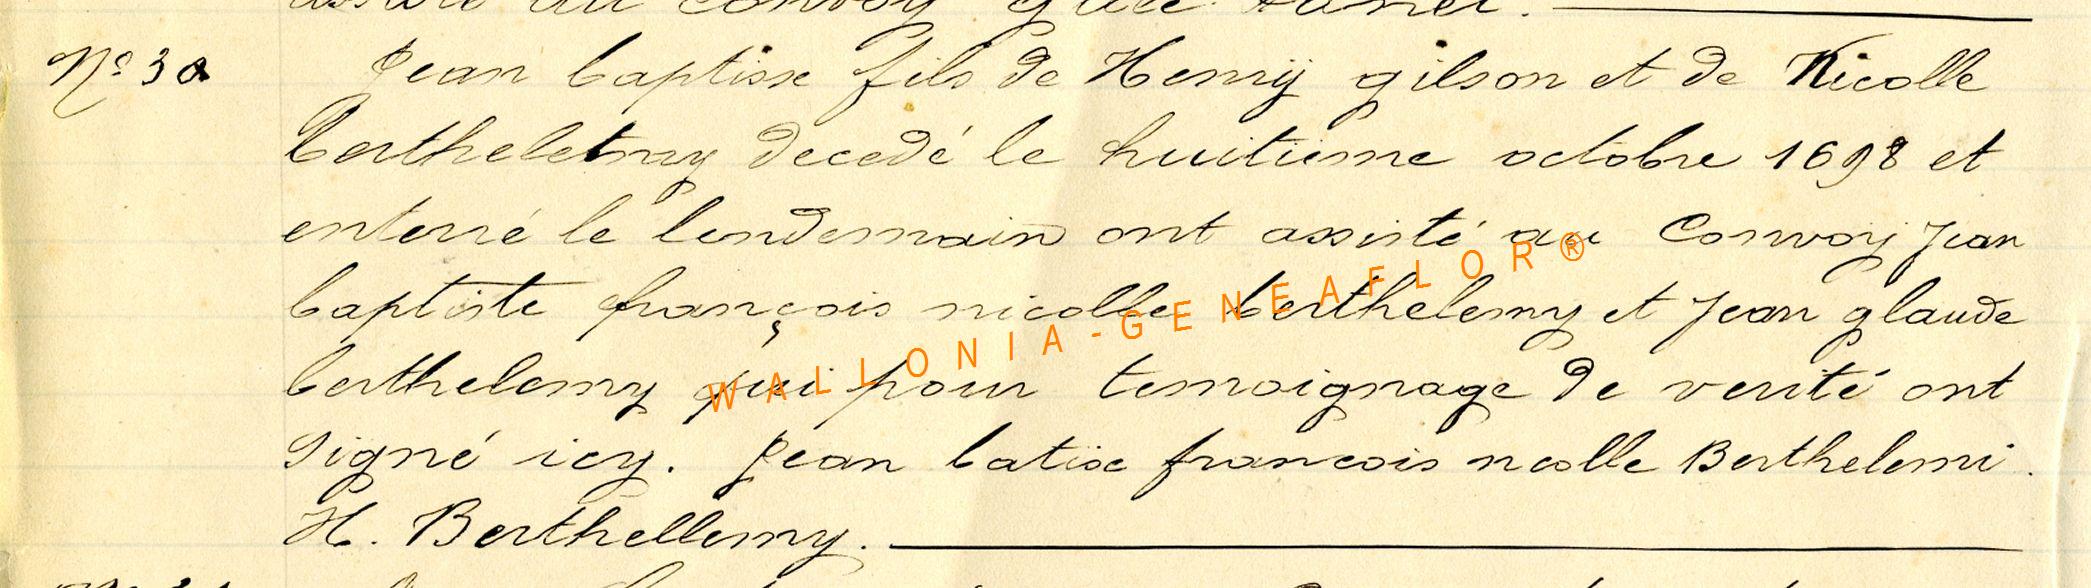 assisté au convoy glade hannel.
N° 30 Jean baptisse fils de Henrÿ gilson et de Nicolle
berthelemay decedé le huitieme octobre 1698 et
enterré le lendemain ont assisté au Convoy Jean
baptiste françois nicolle berthelemy et Jean glaude
berthelemy qui pour temoignage de verité ont
signé icy. Jean batise francois ncolle Berthelemi.
H. Berthellemy.
WALLONIA-GENEAFLOR®